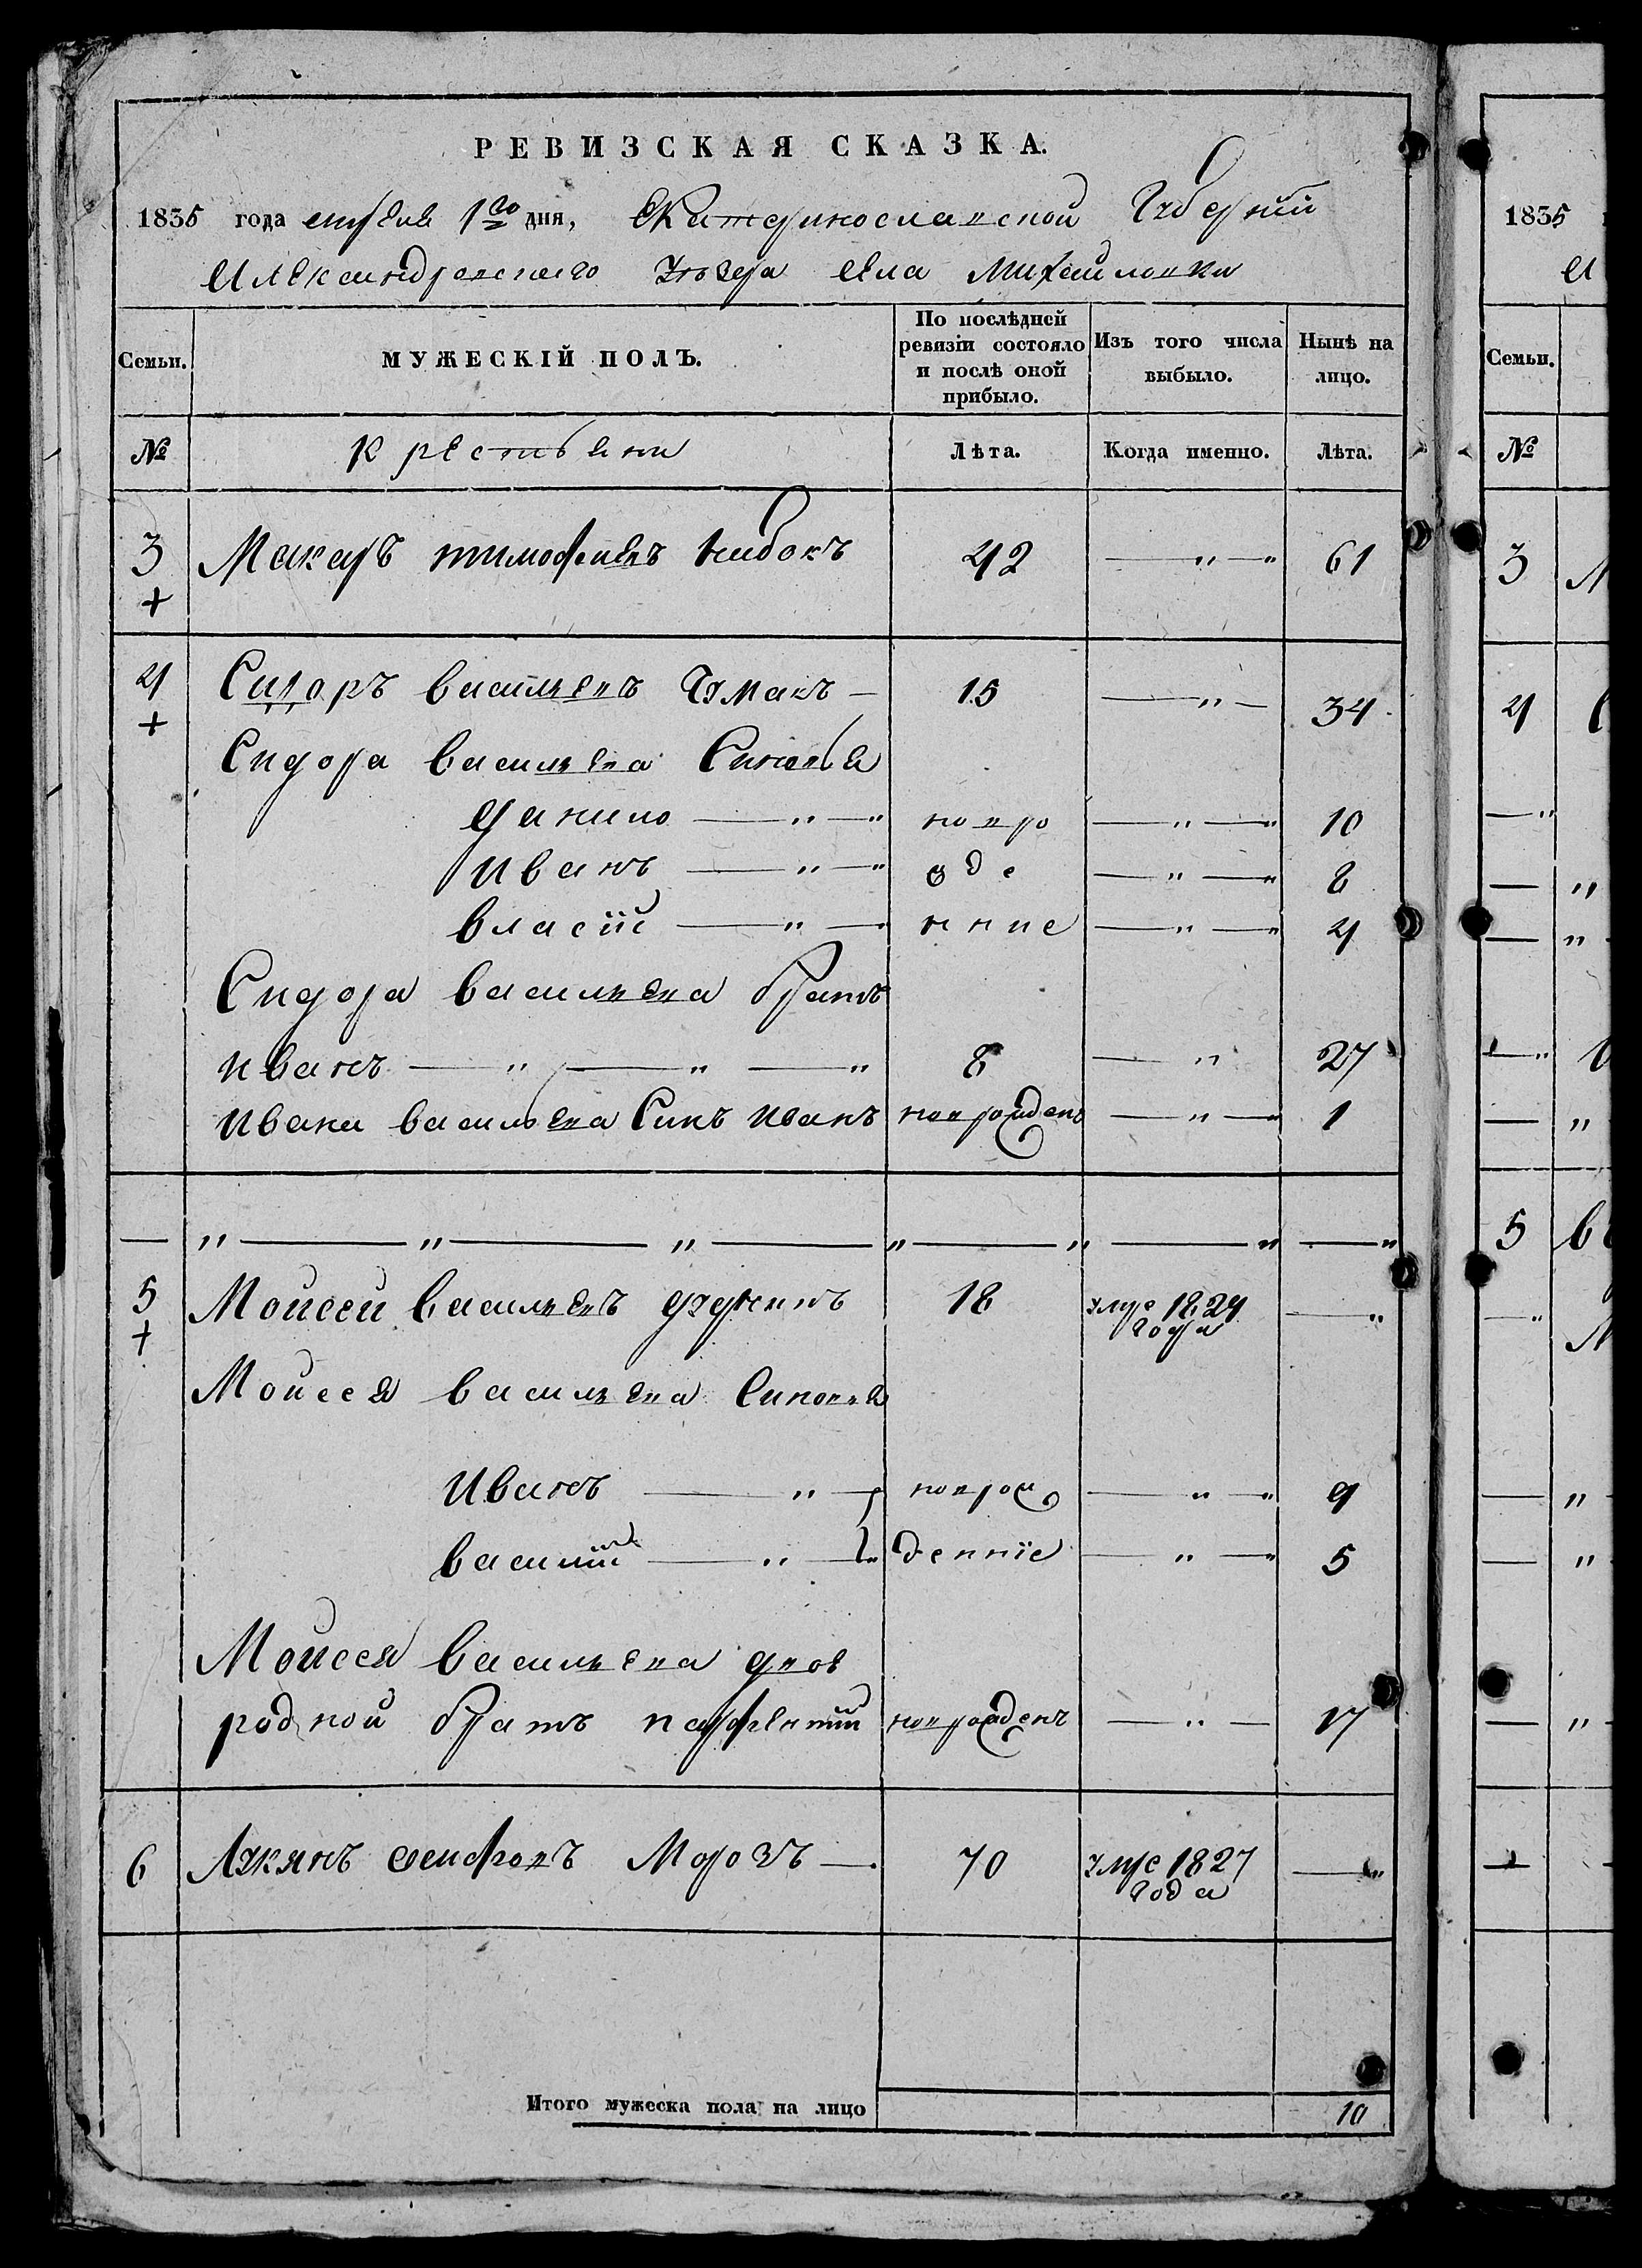 РЕВИЗСКАЯ СКАЗКА.
1835 года апреля 1го дня, Екатеринославской Губернии
Александровского уезда села Михайловки
Семьи. МУЖЕСКІЙ ПОЛЪ. По послѣдней ревизіи состояло и послѣ оной прибыло. Изъ того числа выбыло. Нынѣ на лицо.
№ Крестьяни Лѣта. Когда именно. Лѣта.
3 Макаръ тимофеевъ 42 —"—" 61
+
4 Сидоръ васильевъ — 15 —"— 34
+
Сидора васильева Синовья
Данило —"—" новоро —"—" 10
Иванъ —"—" жде —"—" 8
власій —"— нние —"—" 4
Сидора васильева братъ
иванъ —"—"—" 8 —" 27
Ивана васильева Синъ иванъ новорожденъ —"—" 1
— "—"—"—"—"—"—"
5 Моисей васильевъ 18 умре 1824 —"
+ года
Моисея васильева Синовья
Иванъ —"— новорож —"—" 9
василій —"— деннie —"—" 5
Моисея васильева двою
родной братъ парфентий новорожденъ —"— 17
6 Лукянъ Морозъ —. 70 умре 1827 —"
года
Итого мужеска пола на лицо 10
1835
Семьи.
№
3
4
—"
— "
— "
—"
— "
5
—"
— "
— "
— "
—